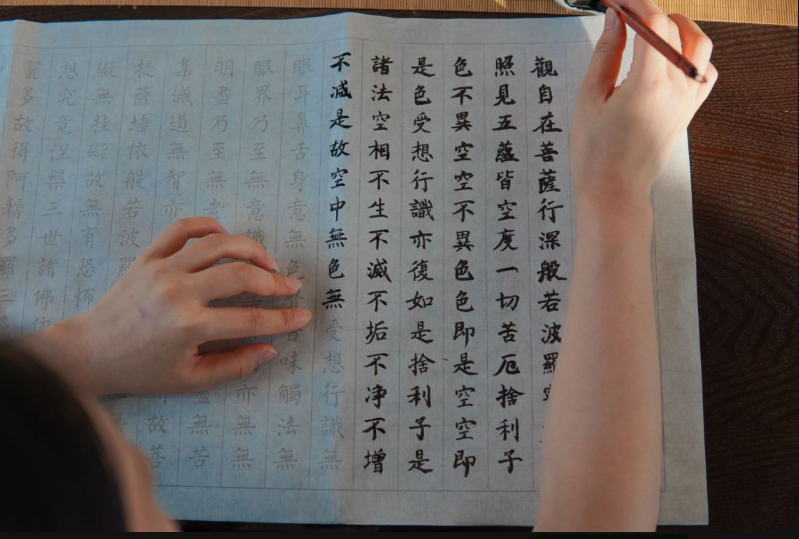 觀自在菩薩行深般若波羅
照見五蘊皆空度一切苦厄捨利子
色不異空空不異色色即是空空即
是色受想行識亦復如是捨利子是
諸法空相不生不滅不垢不净不增
不減是故空中無色無受想行識無
眼耳鼻舌身意無色香味觸法無
眼界乃至無意識亦無無
明盡乃至無老盡無苦
集滅道無智亦故菩
提薩埵依般若波羅
礙無挂礙故無有恐怖
想究竟涅槃三世諸佛依
蜜多故得阿耨多羅三